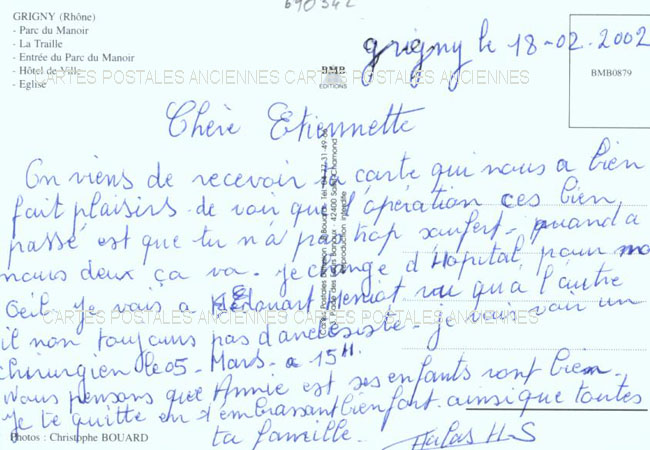 690342
GRIGNY (Rhône)
- Parc du Manoir
- La Traille
- Entrée du Parc du Manoir
- Hôtel de Ville
- Eglise
BMB
EDITIONS
BMB0879
grigny le 18-02.2002
CARTES POSTALES ANCIENNES CARTES POSTALES ANCIENNES
Chère Etiennette
On viens de recevoir ta carte qui nous a bien
fait plaisirs de voir que l'opération ces bien
passé est que tu n'a pas trop soufert - quand a
nous deux ça va - je change d'Hopital pour mo
Oeil je vais a Edouart vu qu'à l'autre
il non toujours pas d'anecesiste - je vais voir un
CARTES POSTALES ANCIENNES CARTES POSTALES ANCIENNES
chirurgien le 05 - Mars - a 15H.
Nous pensons que Annie est ses enfants vont bien.
Je te quitte en t'embrassant bien fort ainsique toutes
ta famille.
Photos : Christophe BOUARD